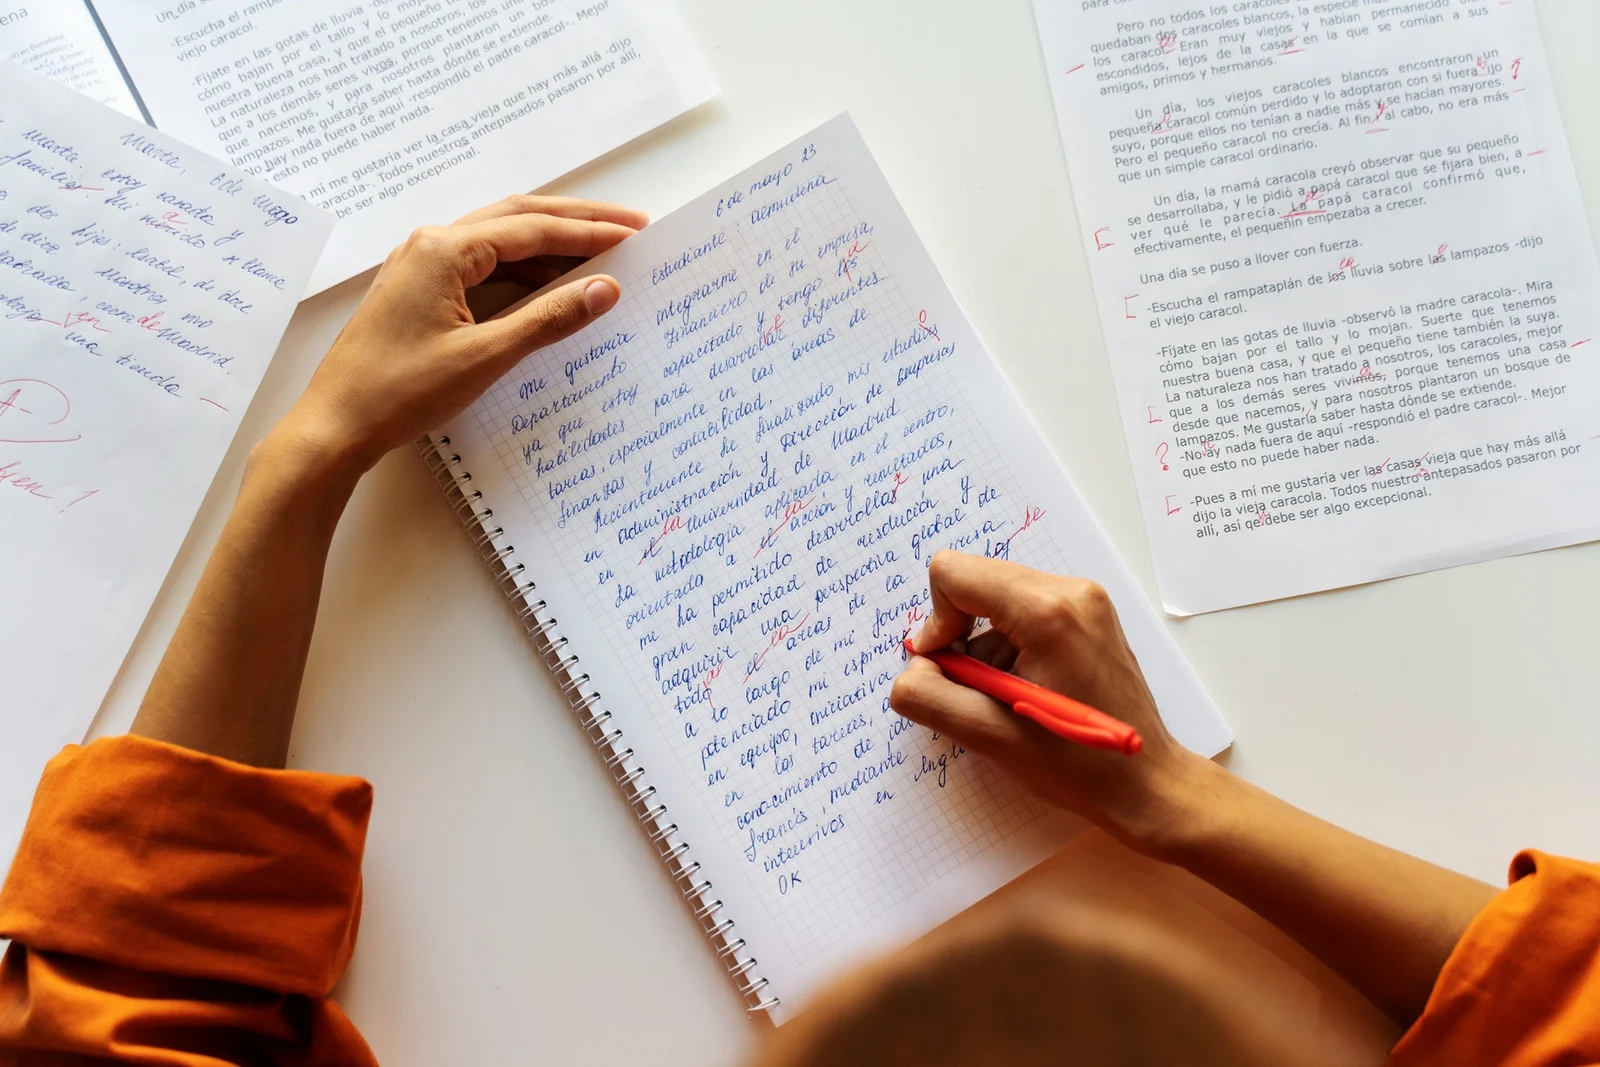 Un día se
-Escucha el rampa
viejo caracol.
-Fíjate en las gotas de lluvia -ob
cómo bajan por el tallo y lo mo
nuestra buena casa, y que el pequeño
La naturaleza nos han tratado a nosotros, los
que a los demás seres vivos, porque tenemos una
nacemos, y para nosotros plantaron un bos
lampazos. Me gustaría saber hasta dónde se extiende.
No hay nada fuera de aquí -respondió el padre caracol-. Mejor
esto no puede haber nada.
a mí me gustaría ver la casa vieja que hay más allá -dijo
caracola-. Todos nuestros antepasados pasaron por allí,
be ser algo excepcional.
Marta, 6 de Mayo
Marta. estoy casada y
familia. Mi marido a
se llama
dos hijos: Isabel, de doce
de diez
Nosotros, vivo en
cerca de Madrid.
una tienda
A-
6 de mayo 23
Estudiante: Almudena
Me gustaría integrarme en el
Departamento Financiero de su empresa,
ya que estoy capacitado y tengo las a
habilidades para desarrollar diferentes
tareas, especialmente en las áreas de
finanzas y contabilidad.
Recientemente he finalizado mis estudios o
en administración y Dirección de Empresas
en el la Universidad de Madrid.
La metodología aplicada en el centro,
orientada a el la acción y resultados,
me ha permitido desarrollar r una
gran capacidad de resolución y
adquirir una perspectiva global de
todo as el la áreas de la empresa.
a lo largo de mi formac hoy he
potenciado mi espíritu u
en equipo, iniciativa
en las tareas, a
conocimiento de idi
francés, mediante
intensivos en Ingl
OK
para con
Pero no todos los caracoles
quedaban dos caracoles blancos, la especie más
los caracol. Eran muy viejos y habían permanecido
escondidos, lejos de la casas en la que se comían a sus
amigos, primos y hermanos.
Un día, los viejos caracoles blancos encontraron un
pequeña caracol común perdido y lo adoptaron con si fuera ijo ?
suyo, porque ellos no tenían a nadie más y se hacían mayores.
Pero el pequeño caracol no crecía. Al fin y al cabo, no era más
que un simple caracol ordinario.
Un día, la mamá caracola creyó observar que su pequeño
se desarrollaba, y le pidió a papá caracol que se fijara bien, a
ver qué le parecía. La papá caracol confirmó que,
efectivamente, el pequeñín empezaba a crecer.
Una día se puso a llover con fuerza.
-Escucha el rampataplán de los la lluvia sobre las lampazos -dijo
el viejo caracol.
-Fíjate en las gotas de lluvia -observó la madre caracola-. Mira
cómo bajan por el tallo y lo mojan. Suerte que tenemos
nuestra buena casa, y que el pequeño tiene también la suya.
La naturaleza nos han tratado a nosotros, los caracoles, mejor
que a los demás seres vivimos, porque tenemos una casa
desde que nacemos, y para nosotros plantaron un bosque de
lampazos. Me gustaría saber hasta dónde se extiende.
? -No ay nada fuera de aquí -respondió el padre caracol-. Mejor
que esto no puede haber nada.
-Pues a mí me gustaría ver las casas vieja que hay más allá
dijo la vieja caracola. Todos nuestro antepasados pasaron por
allí, así qe debe ser algo excepcional.